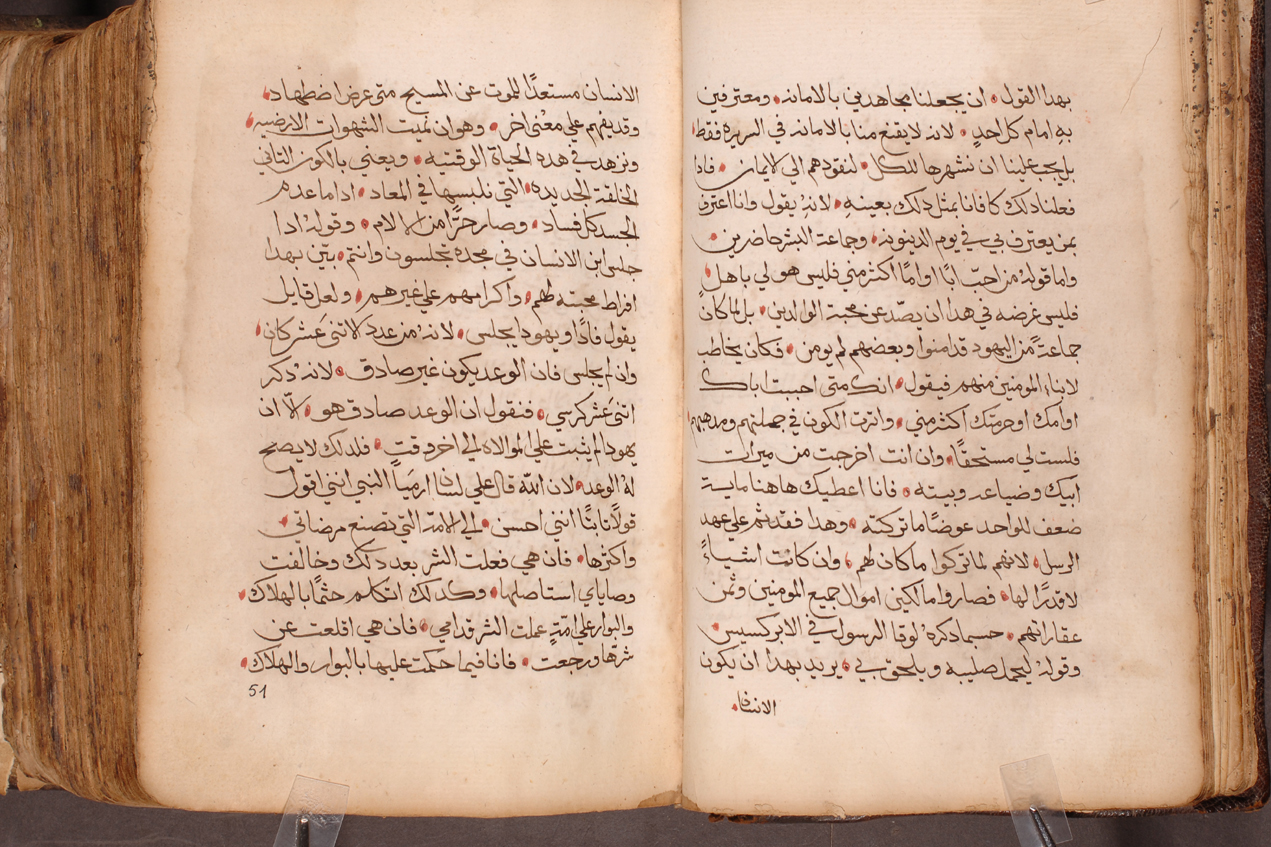 بهدا القول ان يجعلنا مجاهدين بالامانه ومعترفين
به امام كل احدٍ لانه لا يقنع منا بالامانه في السريره فقط
بل يجب علينا ان نشهرها للكل لنقودهم الي الايمان فادا
فعلنا دلك كافانا بمثل دلك بعينهِ لانهُ يقول وانا اعترف
بمن يعترف بي في يوم الدينونه وجماعة البشر حاضرين
واما قولهُ من احبّ ابًا او امًا اكثر مني فليس هو لي باهل
فليس غرضه في هدا ان يصّد عن محبة الوالدين بل لما كان
جماعةً من اليهود قد امنوا وبعضهم لم يومن فكان يخاطب
لابناء المومنين منهم فيقول انك متى احببت اباك
او امك او حرمتك اكثر مني واثرت الكون في جملتهم ومدهبهم
فلست لي مستحقًا وان انت اخرجت من ميرات
ابيك وضياعه وبيته فانا اعطيك هاهنا ماية
ضعف للواحد عوضًا ما تركته وهدا فقد تم علي عهد
الرسل لانهم لما تركوا ما كان لهم وان كانت اشياءً
لا قدرًا لها فصاروا مالكين اموال جميع المومنين وثمن
عقاراتهم حسبما دكره لوقا الرسول في الابركسيس
وقوله ليحمل صليبه ويلحق بي يريد بهدا ان يكون
الانسان
الانسان مستعدًا للموت عن المسيح متي عرض اضطهاد
وقد يفهم علي معنى اخر وهو ان نميت الشهوات الارضيه
ونزهد في هده الحياة الوقتيه ويعني بالكون التاني
الخلقة الجديده التي نلبسها في المعاد ادا ما عدم
الجسد كل فساد وصار حرًا من الالام وقوله ادا
جلس ابن الانسان في مجده تجلسون وانتم بيّن بهدا
افراط محبته لهم واكرامهم علي غيرهم ولعل قايل
يقول فادًا ويهودا يجلس لانه من عدد الاتنى عَشر كان
وان لم يجلس فان الوعد يكون غير صادق لانه دكر
اتنى عَشر كرسي فنقول ان الوعد صادق هو الّا ان
يهودا لم يثبت علي الموالاه الي اخر وقتٍ فلدلك لا يصح
لهُ الوعد لان الله قال علي لسان ارمَيا النبي انني اقول
قولًا تابتًا انني احسن الي الامة التي تصنع مرضاتي
واكثرها فان هي فعلت الشر بعد دلك وخالفت
وصاياي استاصلها وكدلك اتكلم حتمًا بالهلاك
والبوار علي امّةٍ عملت الشر قدامي فان هي اقلعت عن
شرّها ورجعت فانا فيما حكمت عليها بالبوار والهلاك
51